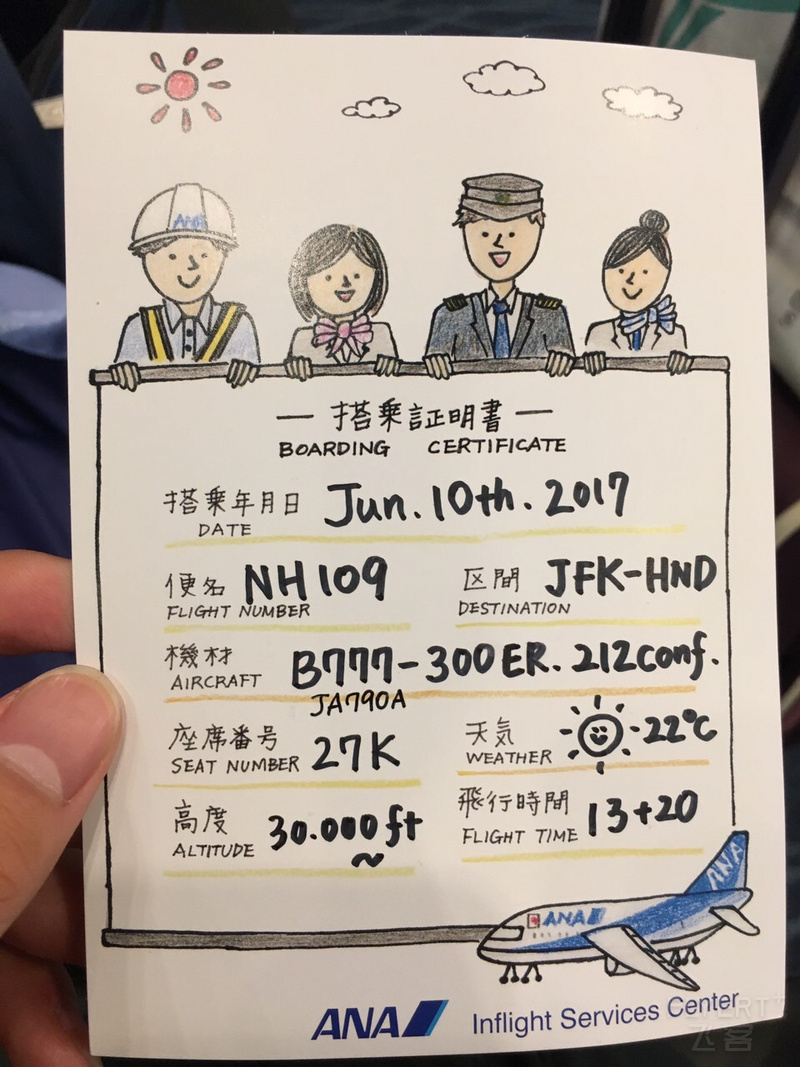 ANA
— 搭乗証明書 —
BOARDING CERTIFICATE
搭乗年月日 Jun. 10th. 2017
DATE
便名 NH109
FLIGHT NUMBER
区間 JFK-HND
DESTINATION
機材 B777-300ER. 212conf.
AIRCRAFT JA790A
座席番号 27K
SEAT NUMBER
天気 22℃
WEATHER
高度 30.000ft
ALTITUDE ~
飛行時間 13+20
FLIGHT TIME
ANA
ANA
ANA Inflight Services Center
飞客